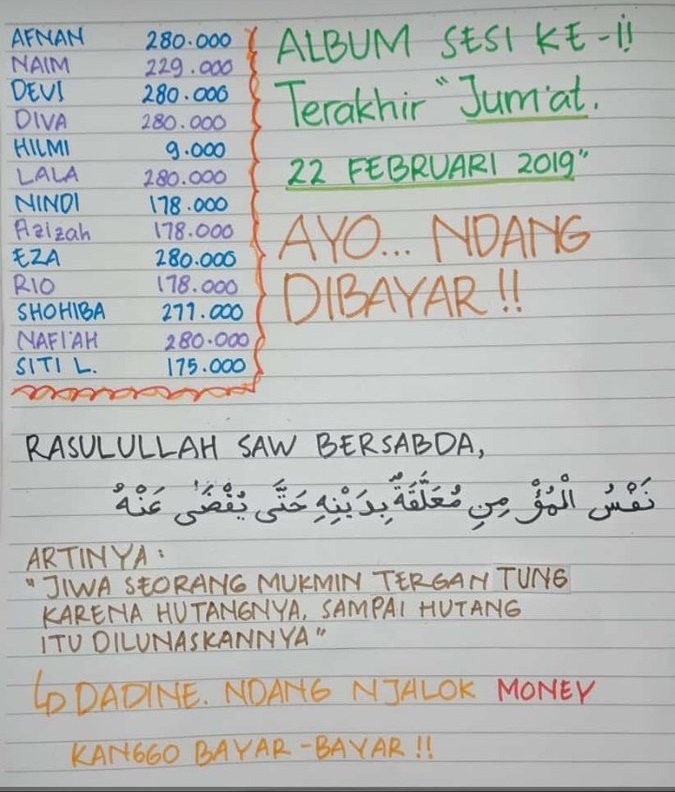 AFNAN 280.000
NAIM 229.000
DEVI 280.000
DIVA 280.000
HILMI 9.000
LALA 280.000
NINDI 178.000
Azizah 178.000
EZA 280.000
RIO 178.000
SHOHIBA 277.000
NAFI'AH 280.000
SITI L. 175.000
ALBUM SESI KE-ii
Terakhir "Jum'at,
22 FEBRUARI 2019"
AYO... NDANG
DIBAYAR !!
RASULULLAH SAW BERSABDA,
نَفْسُ الْمُؤْ مِنِ مُعَلَّقَةٌ بِدَيْنِهِ حَتَّى يُقْضَى عَنْهُ
ARTINYA :
"JIWA SEORANG MUKMIN TERGAN TUNG
KARENA HUTANGNYA, SAMPAI HUTANG
ITU DILUNASKANNYA"
↳ DADINE. NDANG NJALOK MONEY
KANGGO BAYAR-BAYAR !!